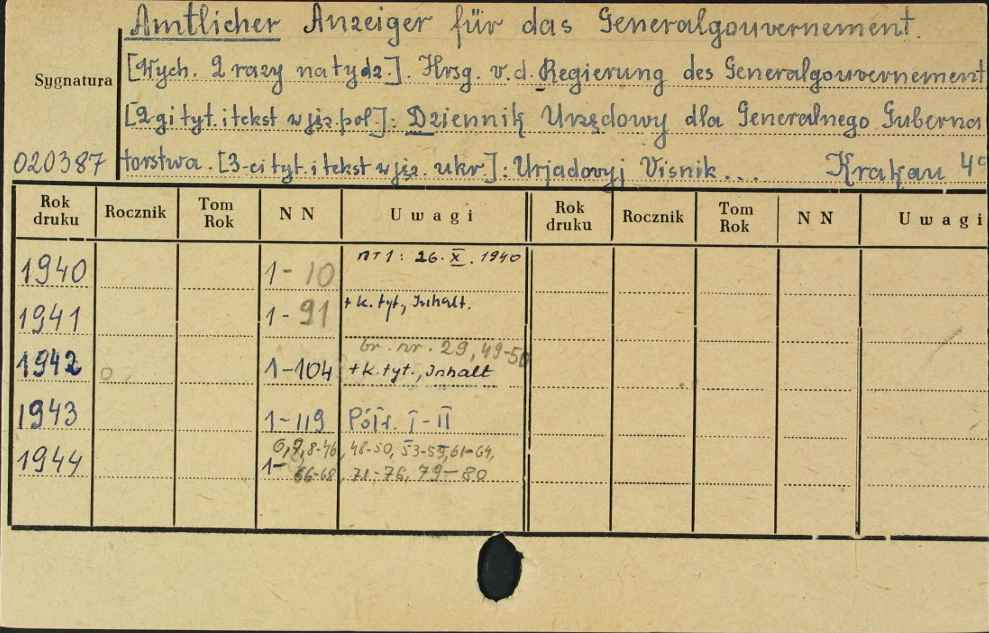 Amtlicher Anzeiger für das Generalgouvernement.
[Wych. 2 razy na tydz.]. Hrsg. v. d. Regierung des Generalgouvernement
Sygnatura
[2-gi tyt. i tekst w jęz. pol.]: Dziennik Urzędowy dla Generalnego Guberna
020387 torstwa. [3-ci tyt. i tekst w jęz. ukr.]: Urjadovyj Visnik... Krakau 4°
Rok druku Rocznik Tom Rok NN Uwagi Rok druku Rocznik Tom Rok NN Uwagi
1940 1-10 nr 1: 26. X. 1940
1941 1-91 + k. tyt., Inhalt.
br. nr. 29, 49-50
1942 1-104 + k. tyt., Inhalt
1943 1-119 Półr. I-II
1944 1- 8-46, 48-50, 53-55, 61-64,
66-68, 71-76, 79-80